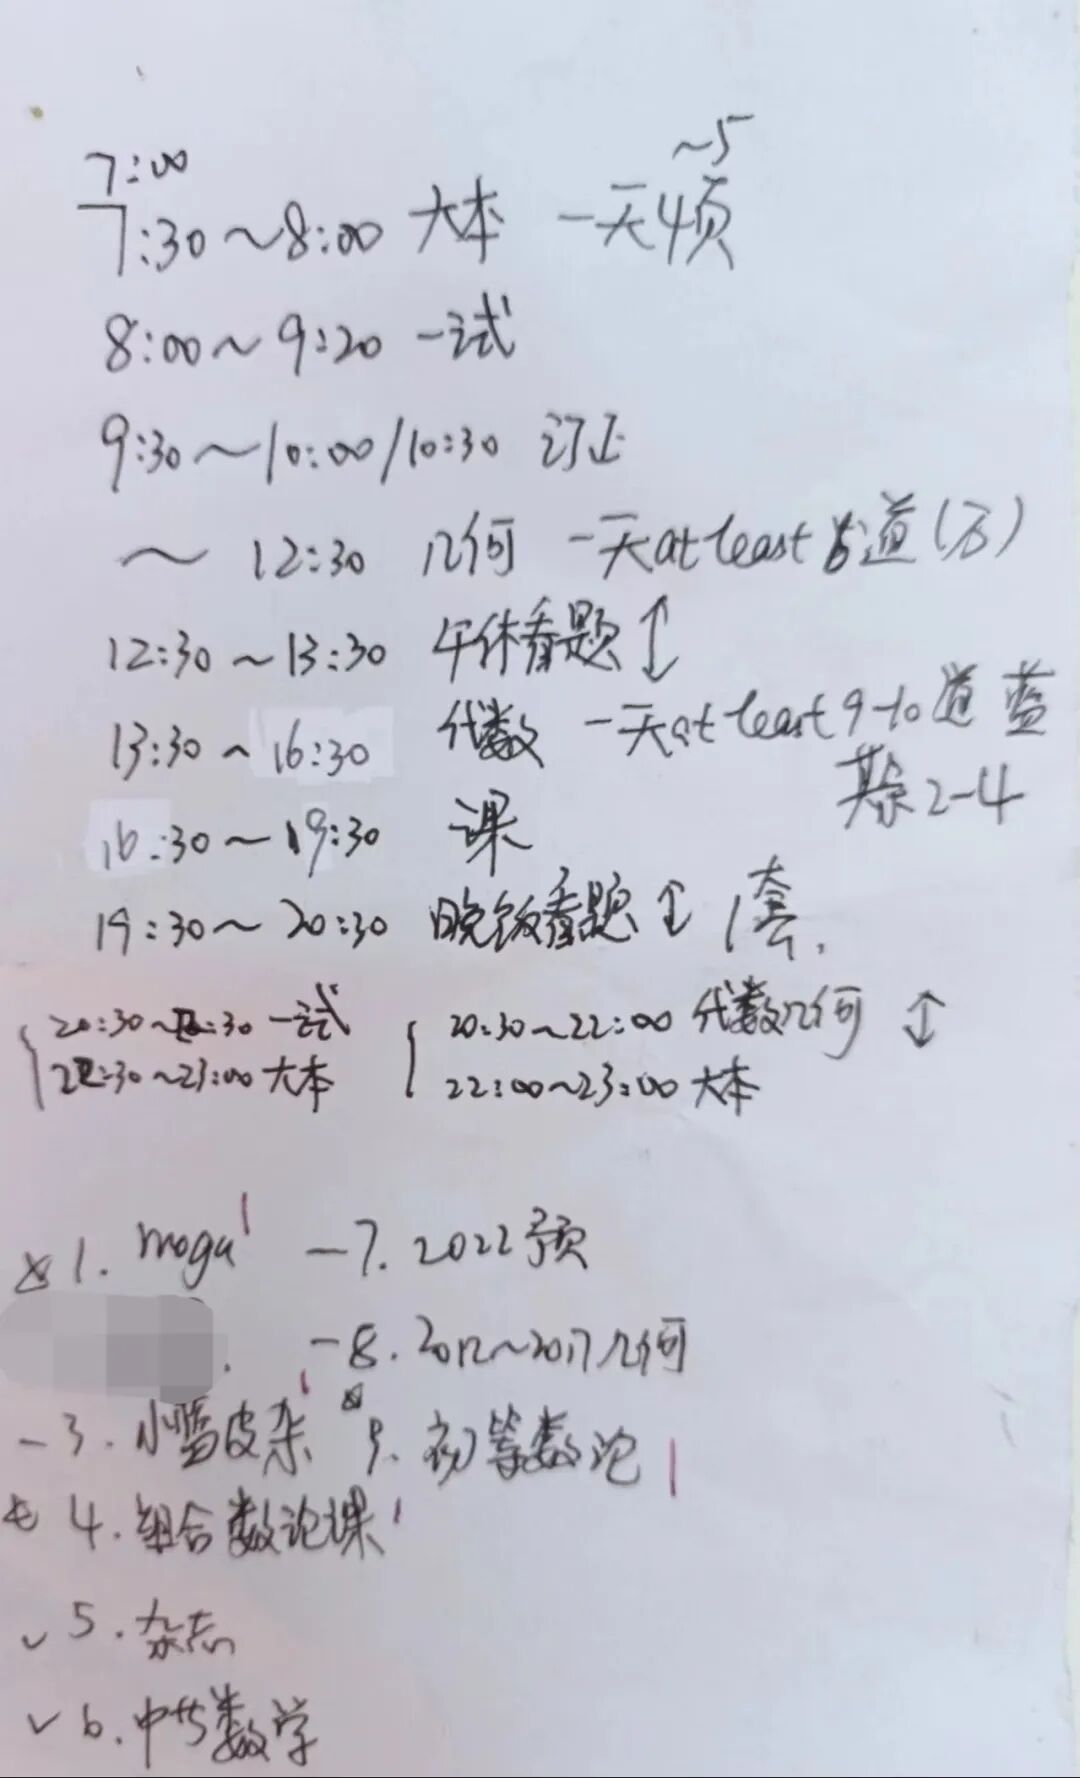 7:00
7:30~8:00 大本 一天4页 ~5
8:00~9:20 一试
9:30~10:00/10:30 订正
~ 12:30 几何 一天at least 道
12:30~13:30 午休看题↕
13:30~16:30 代数 一天at least 9-10道 蓝
其余2-4
16:30~19:30 课
19:30~20:30 晚饭看题↕ 1套.
20:30~22:30 一试
22:30~23:00 大本
20:30~22:00 代数几何 ↕
22:00~23:00 大本
1. moga
-3. 小蓝皮杂
4. 组合数论课
✓ 5. 杂志
✓ 6. 中等数学
-7. 2022预
-8. 2012~2017几何
9. 初等数论